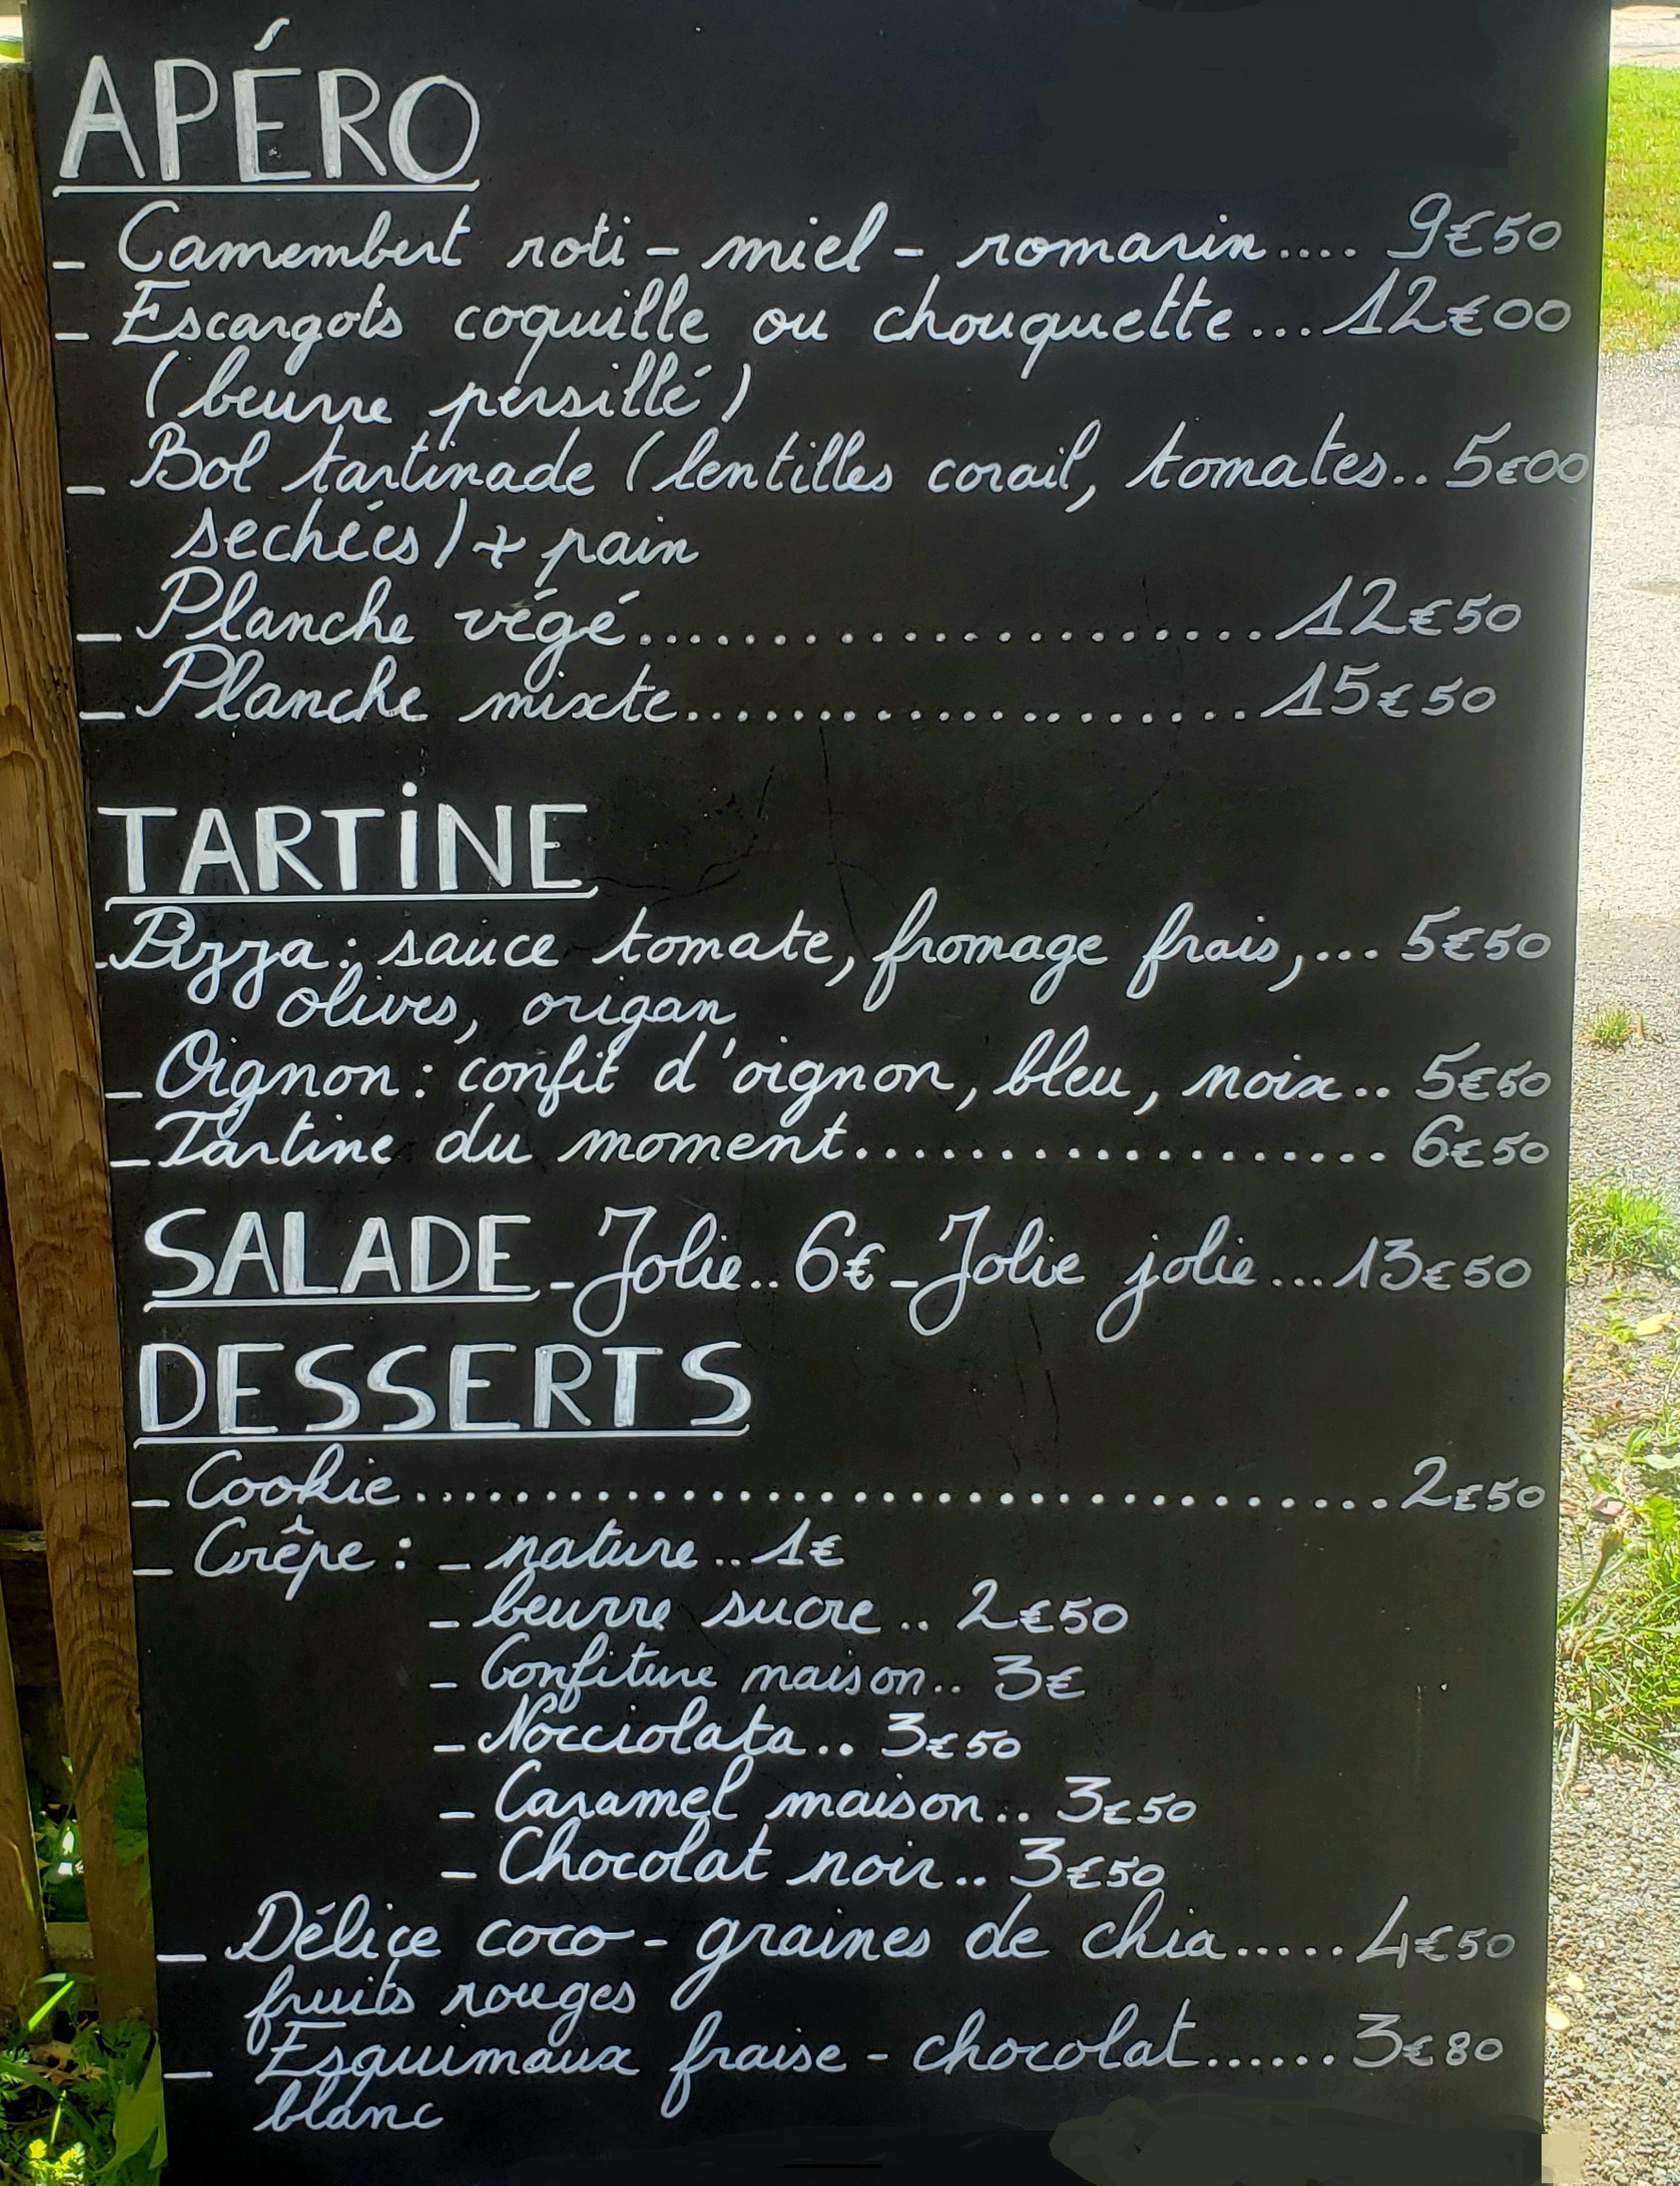 APÉRO
_ Camembert roti - miel - romarin.... 9€50
_ Escargots coquille ou chouquette...12€00
(beurre persillé)
_ Bol tartinade (lentilles corail, tomates.. 5€00
sechées) + pain
_ Planche végé........................12€50
_ Planche mixte......................15€50
TARTiNE
_ Pizza : sauce tomate, fromage frais,... 5€50
olives, origan
_ Oignon : confit d'oignon, bleu, noix.. 5€50
_ Tartine du moment................... 6€50
SALADE _ Jolie.. 6€ _ Jolie jolie...13€50
DESSERTS
_ Cookie.....................................2€50
_ Crêpe : _ nature .. 1€
_ beurre sucre .. 2€50
_ Confiture maison.. 3€
_ Nocciolata.. 3€50
_ Caramel maison.. 3€50
_ Chocolat noir.. 3€50
_ Délice coco - graines de chia.....4€50
fruits rouges
_ Esquimaux fraise - chocolat......3€80
blanc